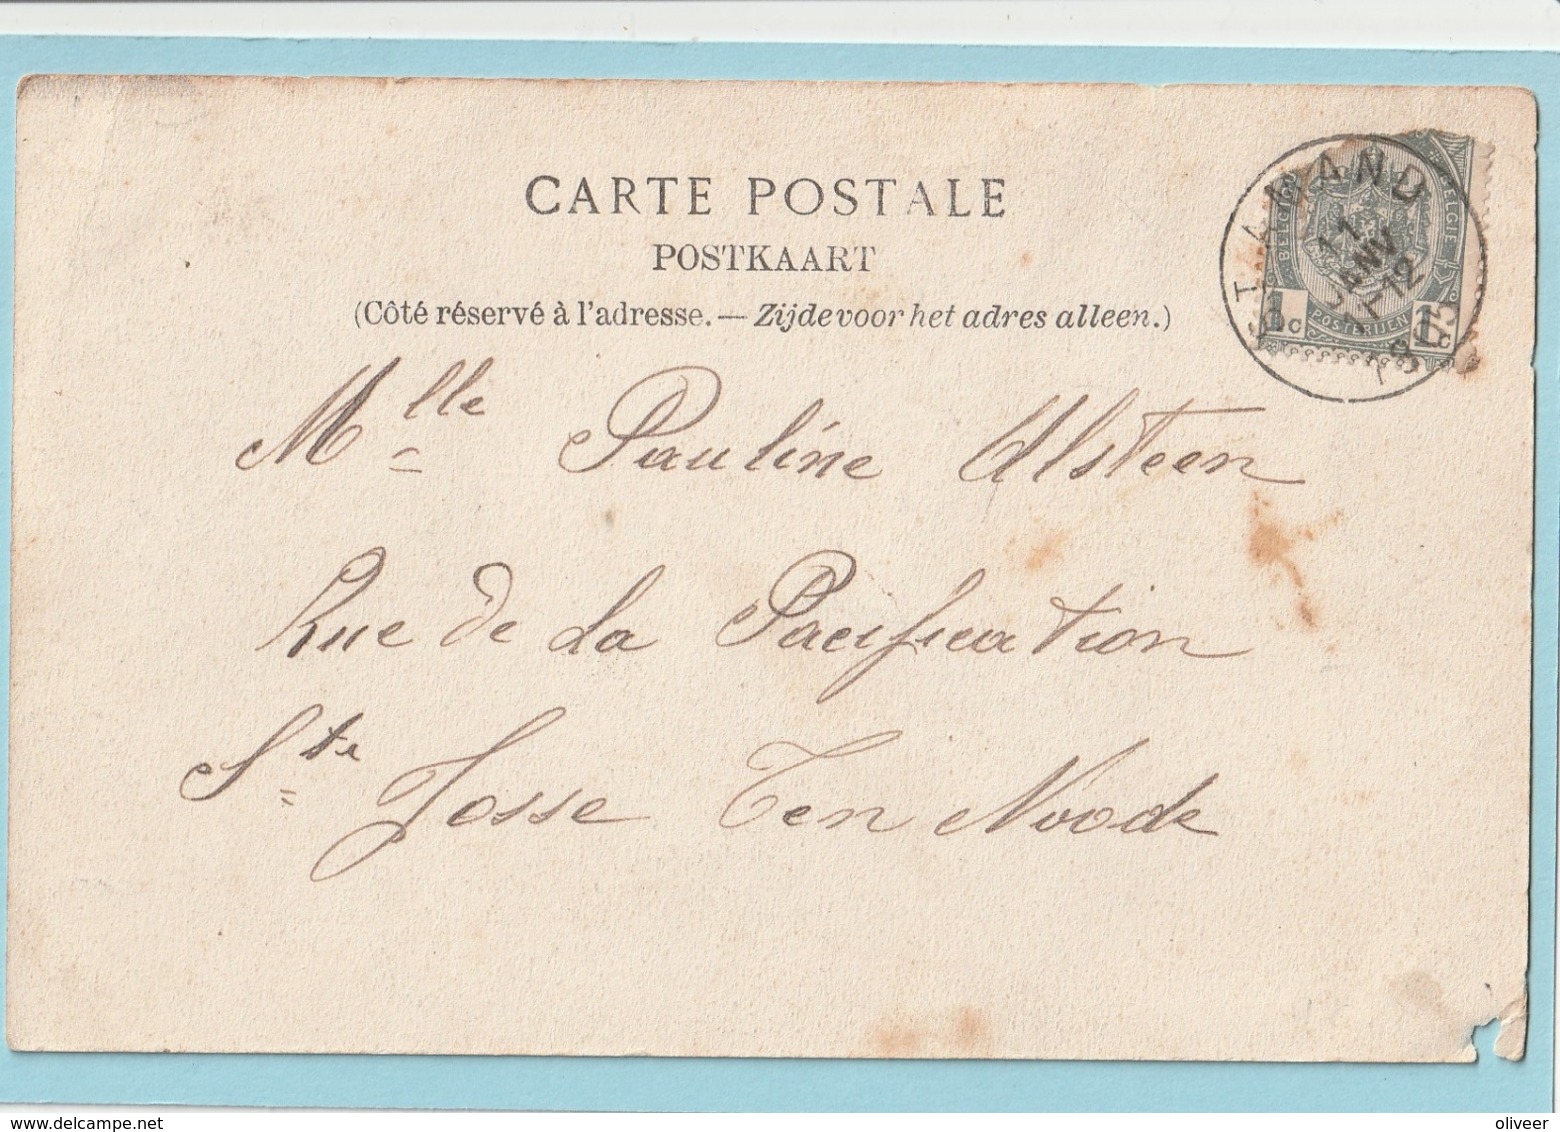 CARTE POSTALE
POSTKAART
(Côté réservé à l'adresse. — Zijde voor het adres alleen.)
ST AMAND
11
JANV
12
1905
BELGIQUE
BELGIË
1c
POSTERIJEN
1c
Mlle Pauline Alsteen
Rue de la Pacification
Ste Josse Ten Noode
www.delcampe.net
oliveer